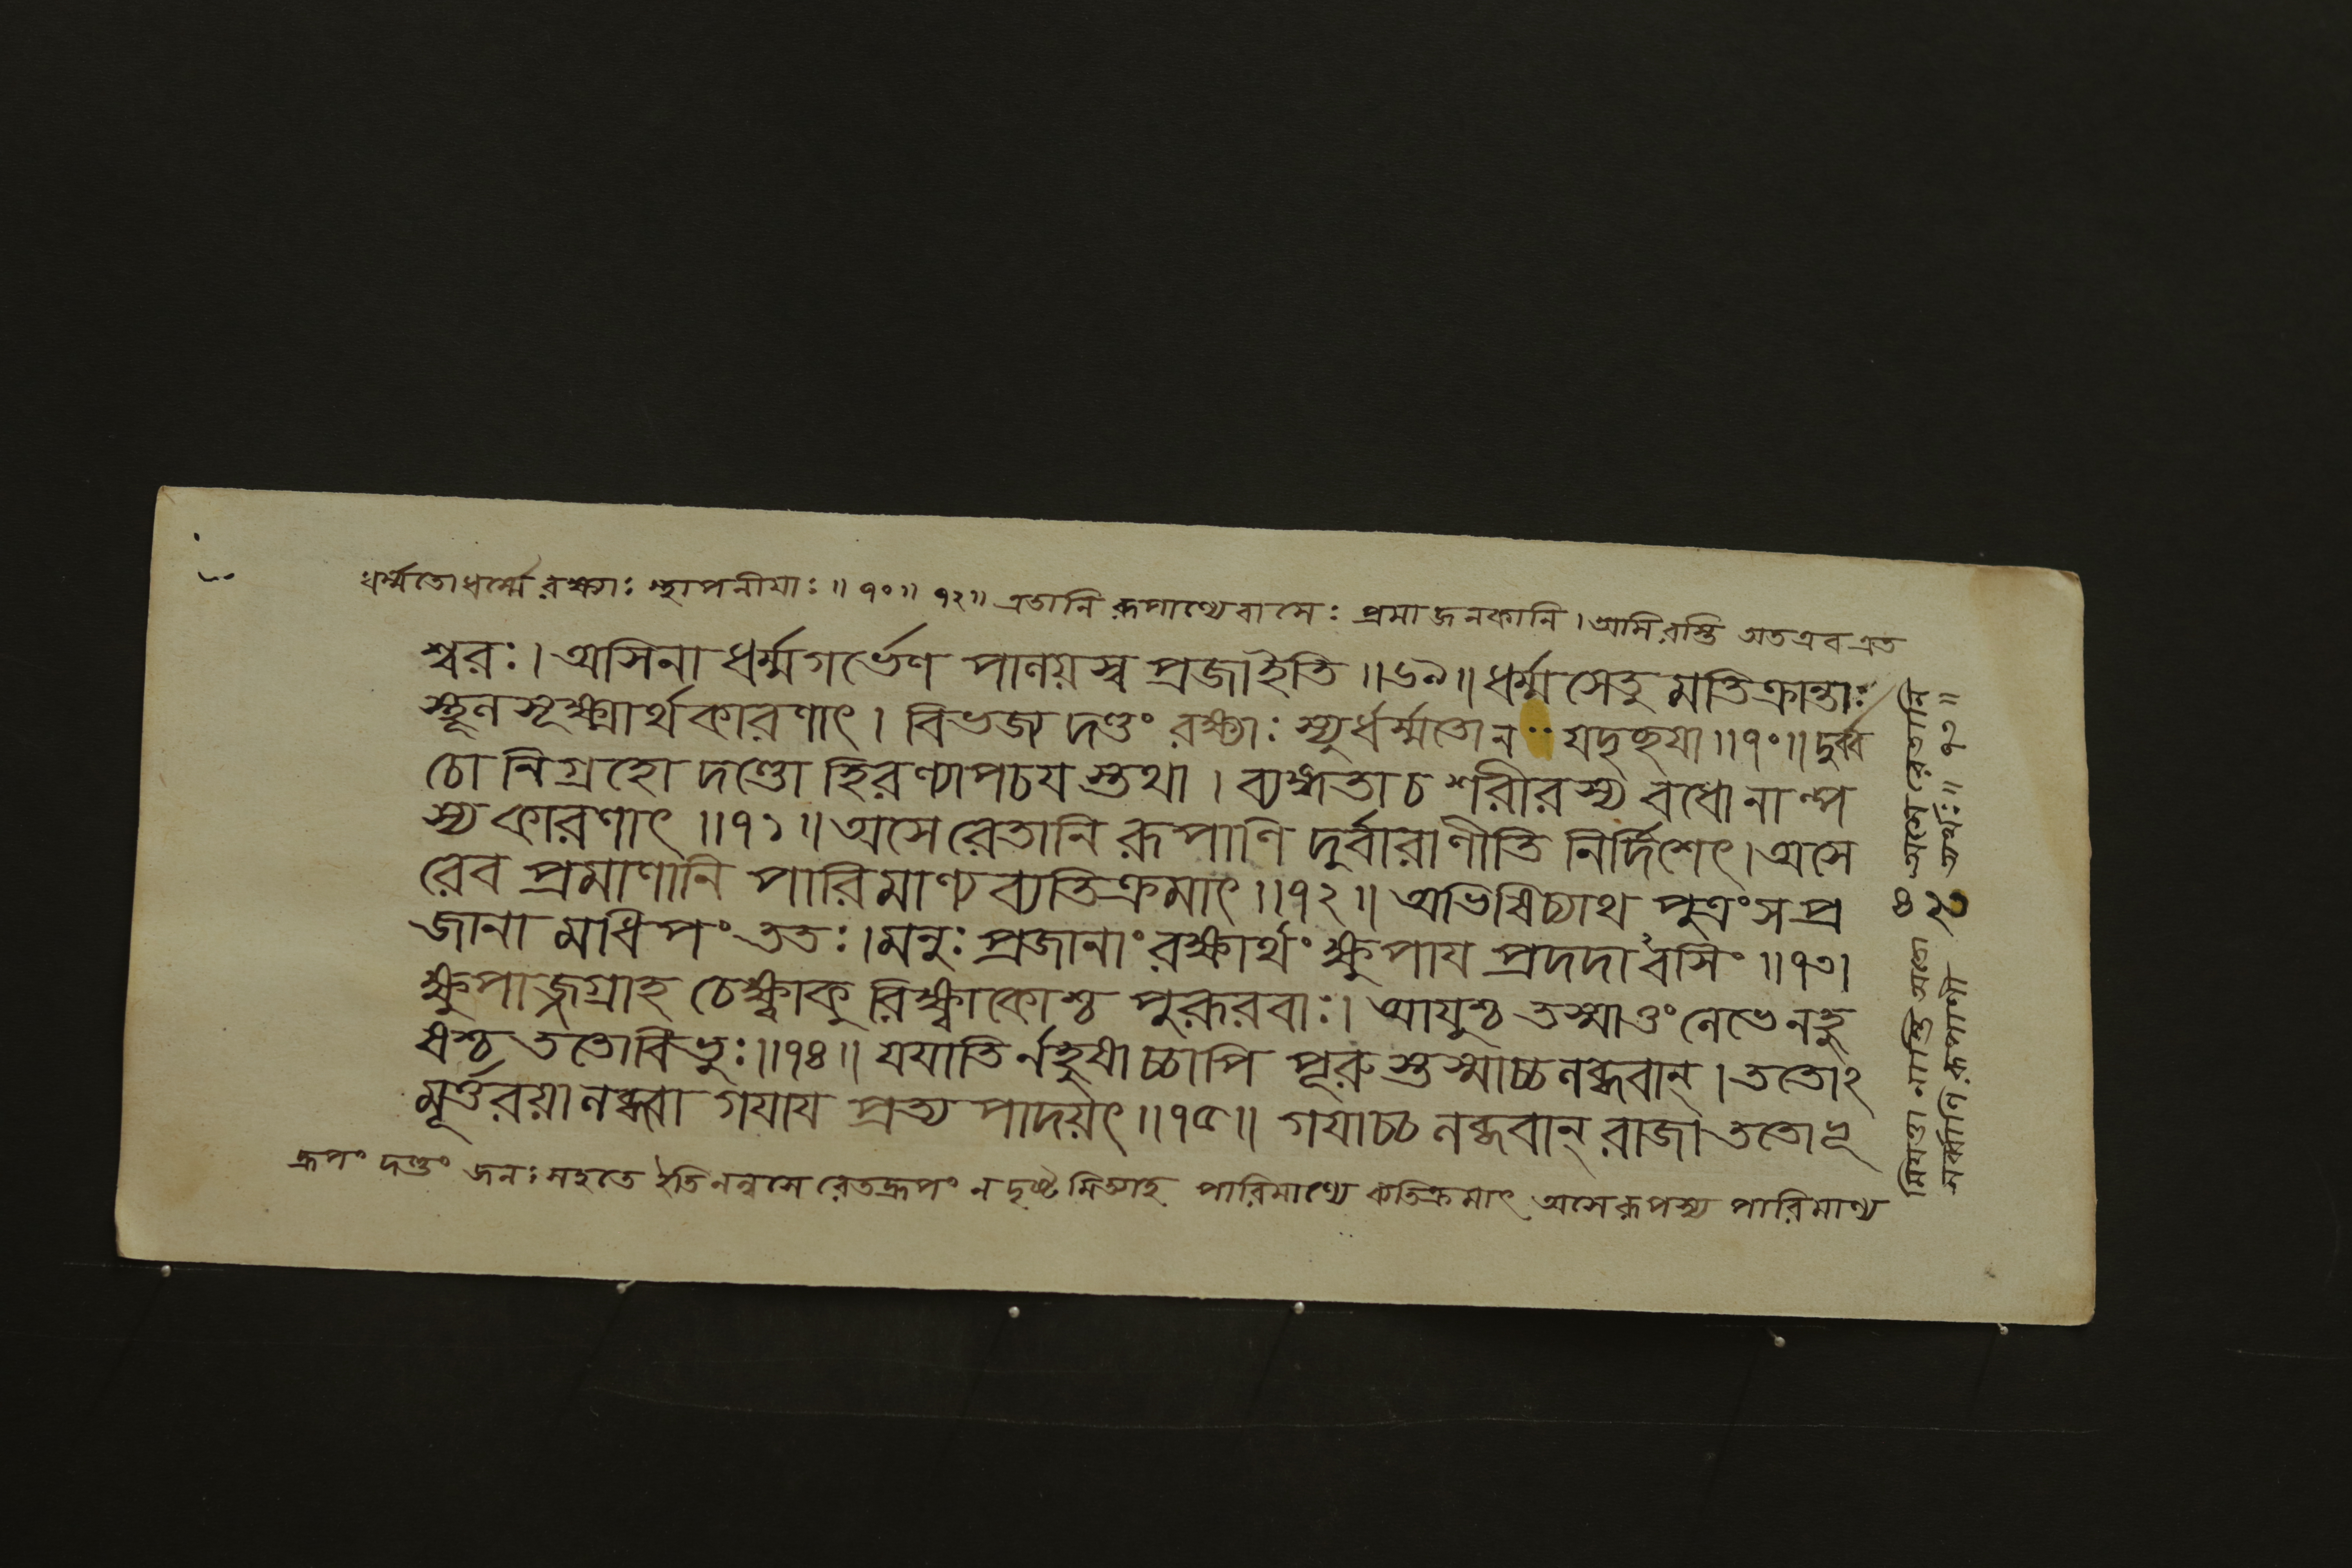 ধর্ম্মতোধর্ম্মে রক্ষ্যাঃ স্থাপনীয়াঃ ॥ ৭০॥ ৭২॥ এতানি রূপাণ্যেবাসেঃ প্রমাজনকানি । আসিরস্তি অতএবএত
শ্বরঃ । অসিনা ধর্ম্মগর্ভেণ পালয়স্ব প্রজাইতি ॥৬৯॥ ধর্ম্মসেতুমতিক্রান্তাঃ
স্থূলসূক্ষ্মার্থকারণাৎ । বিভজ্য দণ্ডং রক্ষ্যাঃ স্যুর্ধর্ম্মতোন যদৃচ্ছয়া ॥৭০॥ দুর্ব্ব
চো নিগ্রহো দণ্ডো হিরণ্যাপচয়স্তথা । ব্যঙ্গতাচ শরীরস্য বধোনাল্প
স্য কারণাৎ ॥৭১॥ অসেরেতানি রূপাণি দুর্বারাণীতি নির্দিশেৎ । অসে
রেব প্রমাণানি পারিমাণ্যব্যতিক্রমাৎ ॥৭২॥ অভিষিচ্যাথ পুত্রং সপ্র
জানামধিপং ততঃ । মনুঃ প্রজানাং রক্ষার্থং ক্ষুপায় প্রদদাবসিং ॥৭৩।
ক্ষুপাজ্জগ্রাহ চেক্ষ্বাকুরিক্ষ্বাকোশ্চ পুরূরবাঃ । আয়ুশ্চ তস্মাত্তং লেভে নহু
ষশ্চ ততোবিভুঃ ॥৭৪॥ যযাতির্নহুষাচ্চাপি পূরুস্তস্মাচ্চলব্ধবান্ । ততোঽ
মূর্ত্তরয়ালব্ধ্বা গয়ায় প্রত্যপাদয়ৎ ॥৭৫॥ গয়াচ্চ লব্ধবান্ রাজা ততোভূ
দ্রূপং দণ্ডং জনঃ সহতে ইতি নন্বসেরেতদ্রূপং ন দৃষ্টমিত্যাহ পারিমাণ্যে ব্যতিক্রমাৎ অসেরূপস্য পারিমাণ্য
মিয়ত্তা নাস্তি অতো অসেরেতানি
সর্ব্বাণি রূপাণী ত্যর্থঃ ॥ ৭২॥
৪২৩